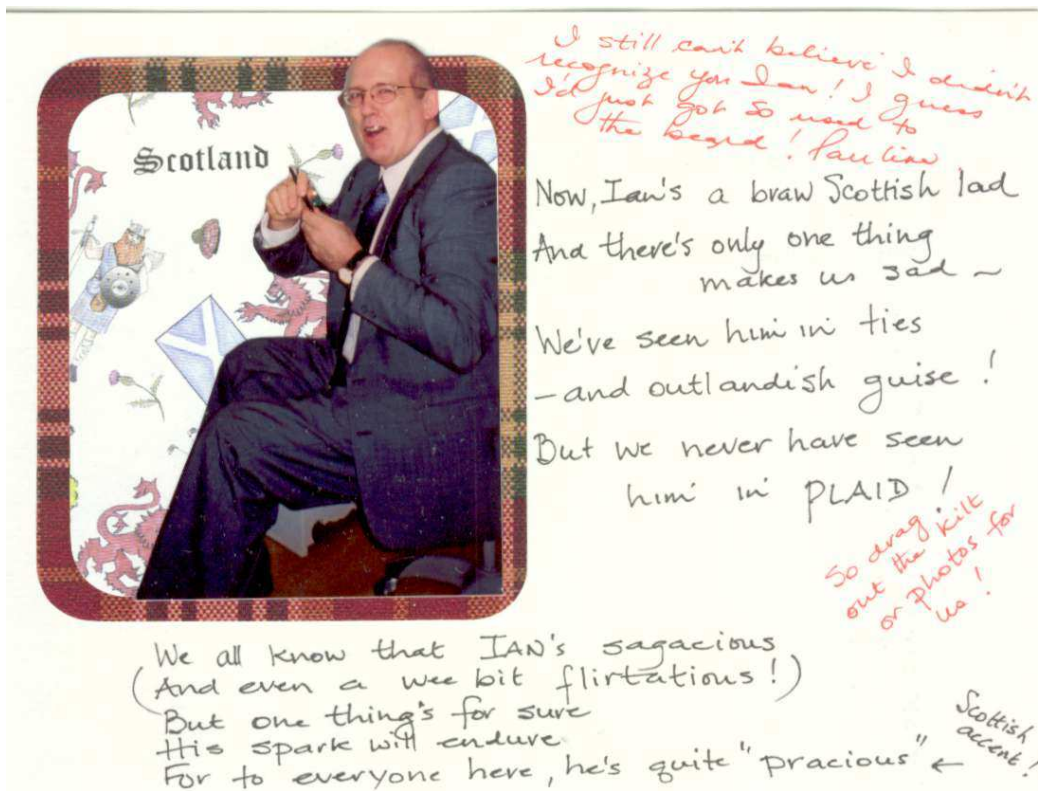 Scotland
I still can't believe I didn't
recognize you Ian! I guess
I'd just got so used to
the beard! Pauline
Now, Ian's a braw Scottish lad
And there's only one thing
makes us sad ~
We've seen him in ties
- and outlandish guise!
But we never have seen
him in PLAID!
So drag
out the kilt
or photos for
us!
We all know that IAN's sagacious
(And even a wee bit flirtatious!)
But one thing's for sure
His spark will endure
For to everyone here, he's quite "pracious" ←
Scottish
accent!